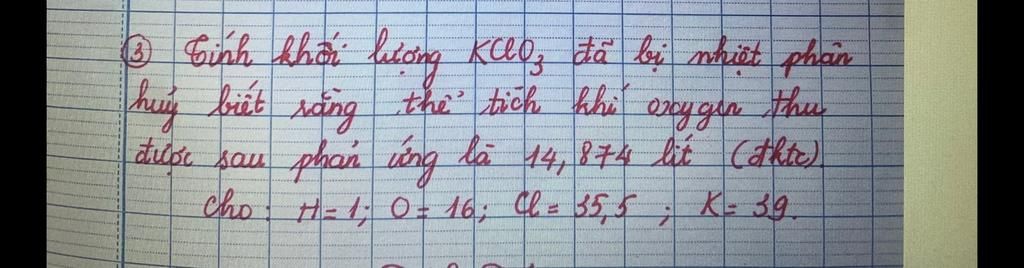 ③ Tính khối lượng KClO₃ đã bị nhiệt phân
huỷ biết rằng thể tích khí oxygen thu
được sau phản ứng là 14,874 lít (đktc)
Cho: H=1; O=16; Cl = 35,5; K=39.